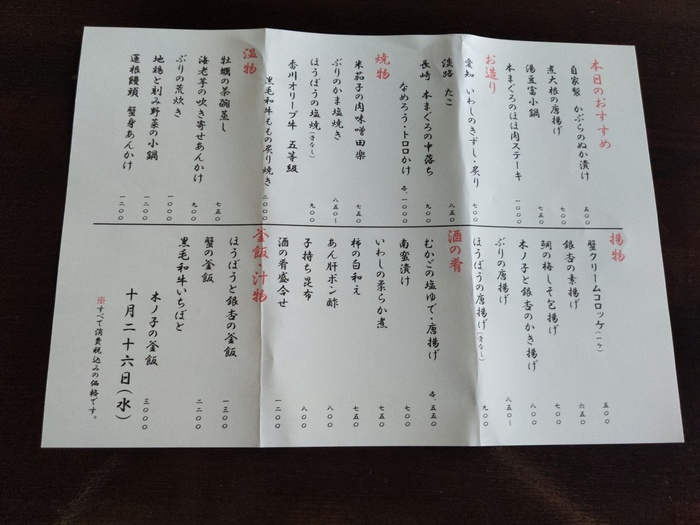 本日のおすすめ
自家製 かぶらのぬか漬け 五〇〇
煮大根の唐揚げ 七五〇
湯豆富小鍋 七五〇
本まぐろのほほ肉ステーキ 一〇〇〇
お造り
愛知 いわしのきずし・炙り 七〇〇
淡路 たこ 八五〇
長崎 本まぐろの中落ち 九〇〇
なめろう・トロロかけ 各、一〇〇〇
焼物
米茄子の肉味噌田楽 七五〇
ぶりのかま塩焼き 八五〇〜
ほうぼうの塩焼(骨なし) 九〇〇
香川オリーブ牛 五等級
黒毛和牛ももの炙り焼き 二〇〇〇
温物
牡蠣の茶碗蒸し 七五〇
海老芋の吹き寄せあんかけ 九〇〇
ぶりの荒炊き 一〇〇〇
地鶏と刻み野菜の小鍋 一二〇〇
蓮根饅頭 蟹身あんかけ 一二〇〇
揚物
蟹クリームコロッケ(一ケ) 五〇〇
銀杏の素揚げ 六五〇
鯛の梅しそ包揚げ 七〇〇
木ノ子と銀杏のかき揚げ 八〇〇
ぶりの唐揚げ 八五〇〜
ほうぼうの唐揚げ(骨なし) 九〇〇
酒の肴
むかごの塩ゆで・唐揚げ 各、五五〇
南蛮漬け 七〇〇
いわしの柔らか煮 七五〇
柿の白和え 七五〇
あん肝ポン酢 八〇〇
子持ち昆布 八〇〇
酒の肴盛合せ 一二〇〇
釜飯・汁物
ほうぼうと銀杏の釜飯 一三〇〇
蟹の釜飯 二二〇〇
黒毛和牛いちぼと
木ノ子の釜飯 三〇〇〇
十月二十六日(水)
※すべて消費税込みの価格です。